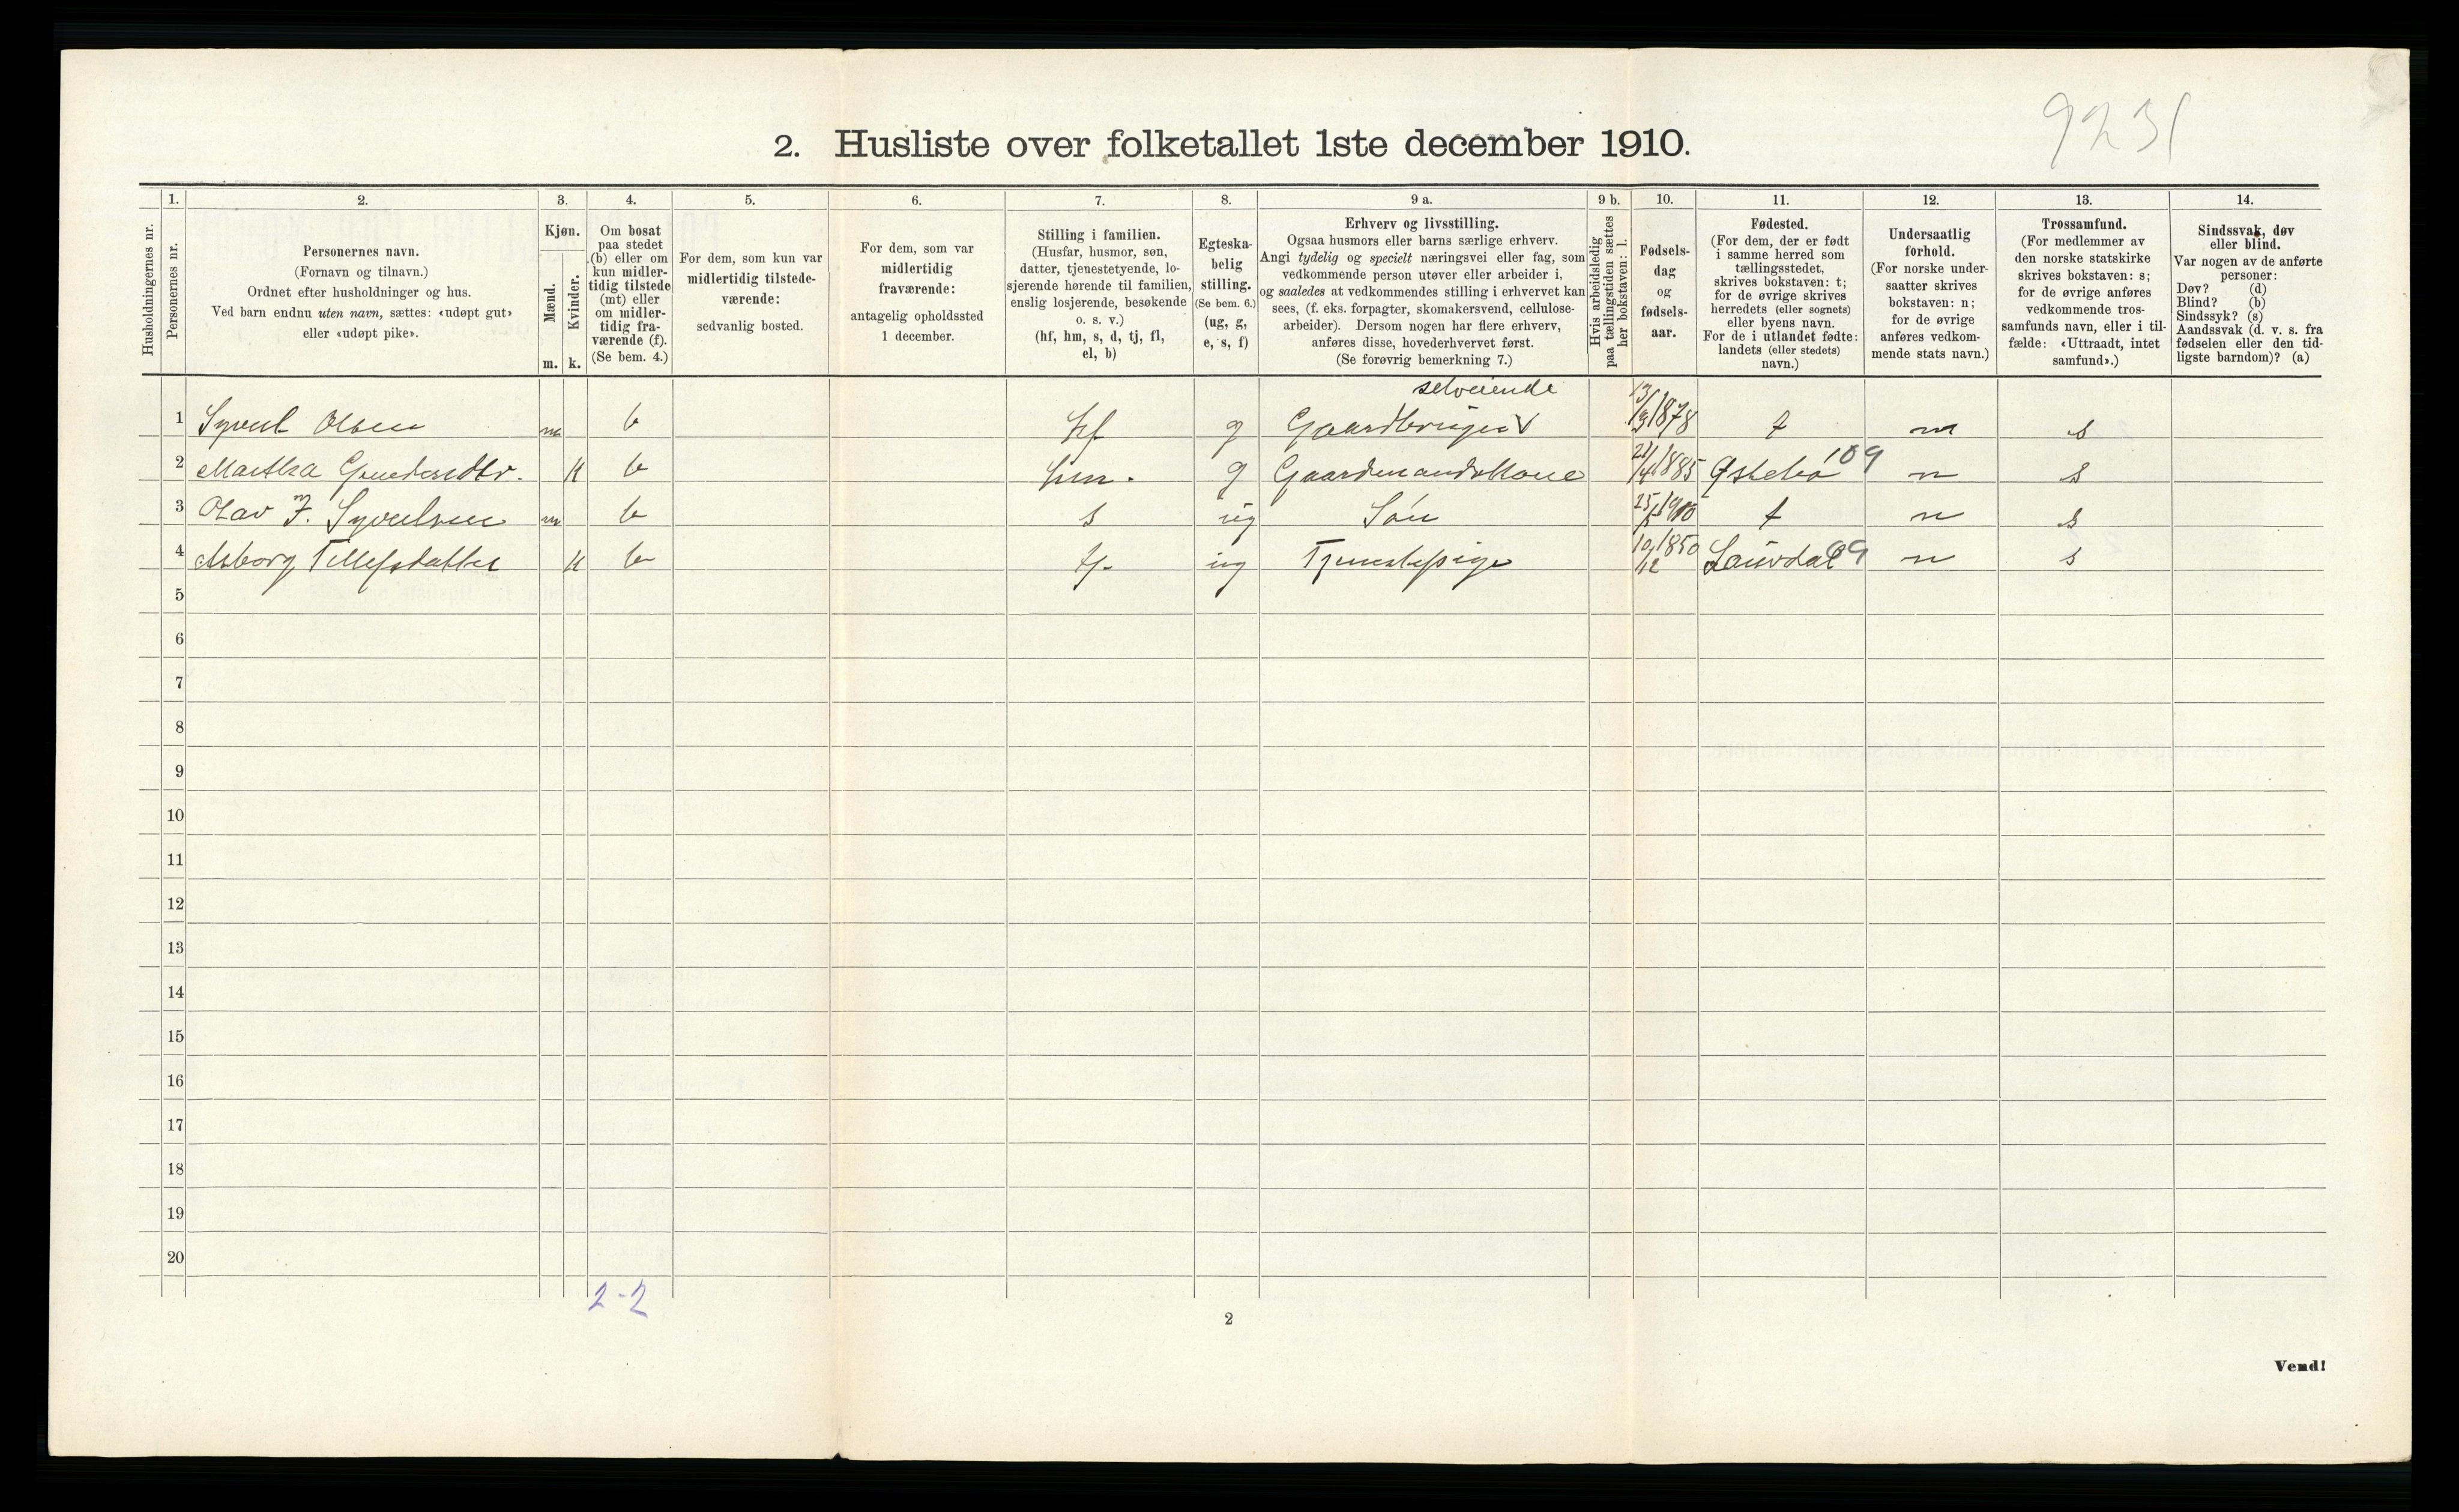 9231
2. Husliste over folketallet 1ste december 1910.
Husholdningernes nr.
1.
Personernes nr.
2.
Personernes navn.
(Fornavn og tilnavn.)
Ordnet efter husholdninger og hus.
Ved barn endnu uten navn, sættes: «udøpt gut»
eller «udøpt pike».
3.
Kjøn.
Mænd.
m.
Kvinder.
k.
4.
Om bosat
paa stedet
(b) eller om
kun midler-
tidig tilstede
(mt) eller
om midler-
tidig fra-
værende (f).
(Se bem. 4.)
5.
For dem, som kun var
midlertidig tilstede-
værende:
sedvanlig bosted.
6.
For dem, som var
midlertidig
fraværende:
antagelig opholdssted
1 december.
7.
Stilling i familien.
(Husfar, husmor, søn,
datter, tjenestetyende, lo-
sjerende hørende til familien,
enslig losjerende, besøkende
o. s. v.)
(hf, hm, s, d, tj, fl,
el, b)
8.
Egteska-
belig
stilling.
(Se bem. 6.)
(ug, g,
e, s, f)
9 a.
Erhverv og livsstilling.
Ogsaa husmors eller barns særlige erhverv.
Angi tydelig og specielt næringsvei eller fag, som
vedkommende person utøver eller arbeider i,
og saaledes at vedkommendes stilling i erhvervet kan
sees, (f. eks. forpagter, skomakersvend, cellulose-
arbeider). Dersom nogen har flere erhverv,
anføres disse, hovederhvervet først.
(Se forøvrig bemerkning 7.)
9 b.
Hvis arbeidsledig
paa tællingstiden sættes
her bokstaven: l.
10.
Fødsels-
dag
og
fødsels-
aar.
11.
Fødested.
(For dem, der er født
i samme herred som
tællingsstedet,
skrives bokstaven: t;
for de øvrige skrives
herredets (eller sognets)
eller byens navn.
For de i utlandet fødte:
landets (eller stedets)
navn.)
12.
Undersaatlig
forhold.
(For norske under-
saatter skrives
bokstaven: n;
for de øvrige
anføres vedkom-
mende stats navn.)
13.
Trossamfund.
(For medlemmer av
den norske statskirke
skrives bokstaven: s;
for de øvrige anføres
vedkommende tros-
samfunds navn, eller i til-
fælde: «Uttraadt, intet
samfund».)
14.
Sindssvak, døv
eller blind.
Var nogen av de anførte
personer:
Døv? (d)
Blind? (b)
Sindssyk? (s)
Aandssvak (d. v. s. fra
fødselen eller den tid-
ligste barndom)? (a)
selveiende
1 Olsen m b hf g Gaardbruger 1878 t n s
2 Martha k b hm. g Gaardmandskone 1885 Østebø 109 n s
3 Olav m b s ug Søn 1910 t n s
4 Asborg Tellefsdatter k b tj. ug Tjenestepige 10/12 1850 Laurdal n s
5
6
7
8
9
10
11
12
13
14
15
16
17
18
19
20
2-2
2
Vend!